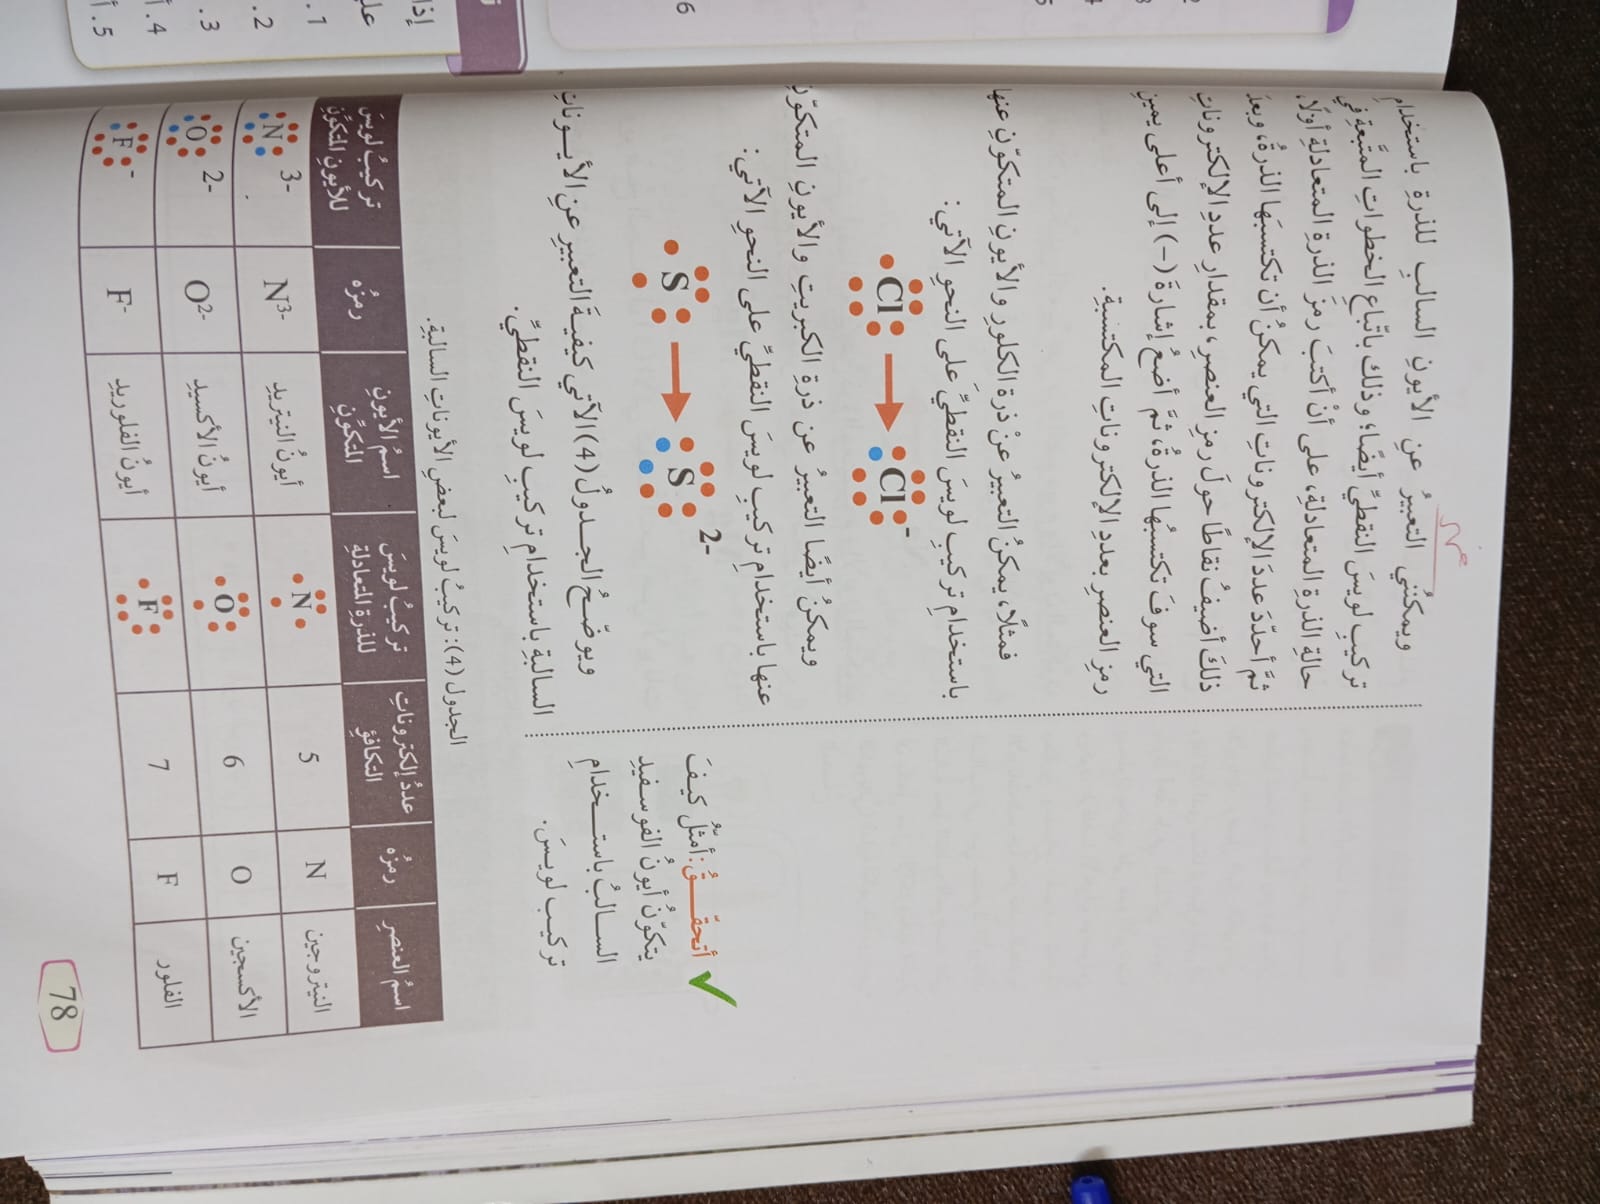 ويمكنُني التعبيرُ عنِ الأيونِ السالبِ للذرةِ باستخدامِ
تركيبِ لويسَ النقطيِّ أيضًا؛ وذلكَ باتّباعِ الخطواتِ المتَّبعةِ في
حالةِ الذرةِ المتعادلةِ، على أنْ أكتبَ رمزَ الذرةِ المتعادلةِ أولًا،
ثمَّ أحدّدَ عددَ الإلكتروناتِ التي يمكنُ أن تكتسبَها الذرةُ، وبعدَ
ذلكَ أضيفُ نقاطًا حولَ رمزِ العنصرِ، بمقدارِ عددِ الإلكتروناتِ
التي سوفَ تكتسبُها الذرةُ، ثمَّ أضعُ إشارةَ (-) إلى أعلى يمينِ
رمزِ العنصرِ بعددِ الإلكتروناتِ المكتسبةِ.
فمثلًا، يمكنُ التعبيرُ عنْ ذرةِ الكلورِ والأيونِ المتكوّنِ عنها
باستخدامِ تركيبِ لويسَ النقطيِّ على النحوِ الآتي:
Cl Cl -
ويمكنُ أيضًا التعبيرُ عن ذرةِ الكبريتِ والأيونِ المتكوّنِ
عنها باستخدامِ تركيبِ لويسَ النقطيِّ على النحوِ الآتي:
S S 2-
ويوضّحُ الجدولُ (4) الآتي كيفيةَ التعبيرِ عنِ الأيوناتِ
السالبةِ باستخدامِ تركيبِ لويسَ النقطيِّ.
أتحقّقُ: أمثّلُ كيفَ
يتكوّنُ أيونُ الفوسفيدِ
السالبُ باستخدامِ
تركيبِ لويسَ.
الجدول (4): تركيبُ لويسَ لبعضِ الأيوناتِ السالبةِ.
اسمُ العنصرِ رمزُه عددُ إلكتروناتِ التكافؤِ تركيبُ لويسَ للذرةِ المتعادلةِ اسمُ الأيونِ المتكوِّنِ رمزُه تركيبُ لويسَ للأيونِ المتكوِّنِ
النيتروجين N 5 N أيونُ النيتريدِ N3- N 3-
الأكسجين O 6 O أيونُ الأكسيدِ O2- O 2-
الفلور F 7 F أيونُ الفلوريدِ F- F -
78
إذا
1.
2.
3.
4. أ
5. أ
6